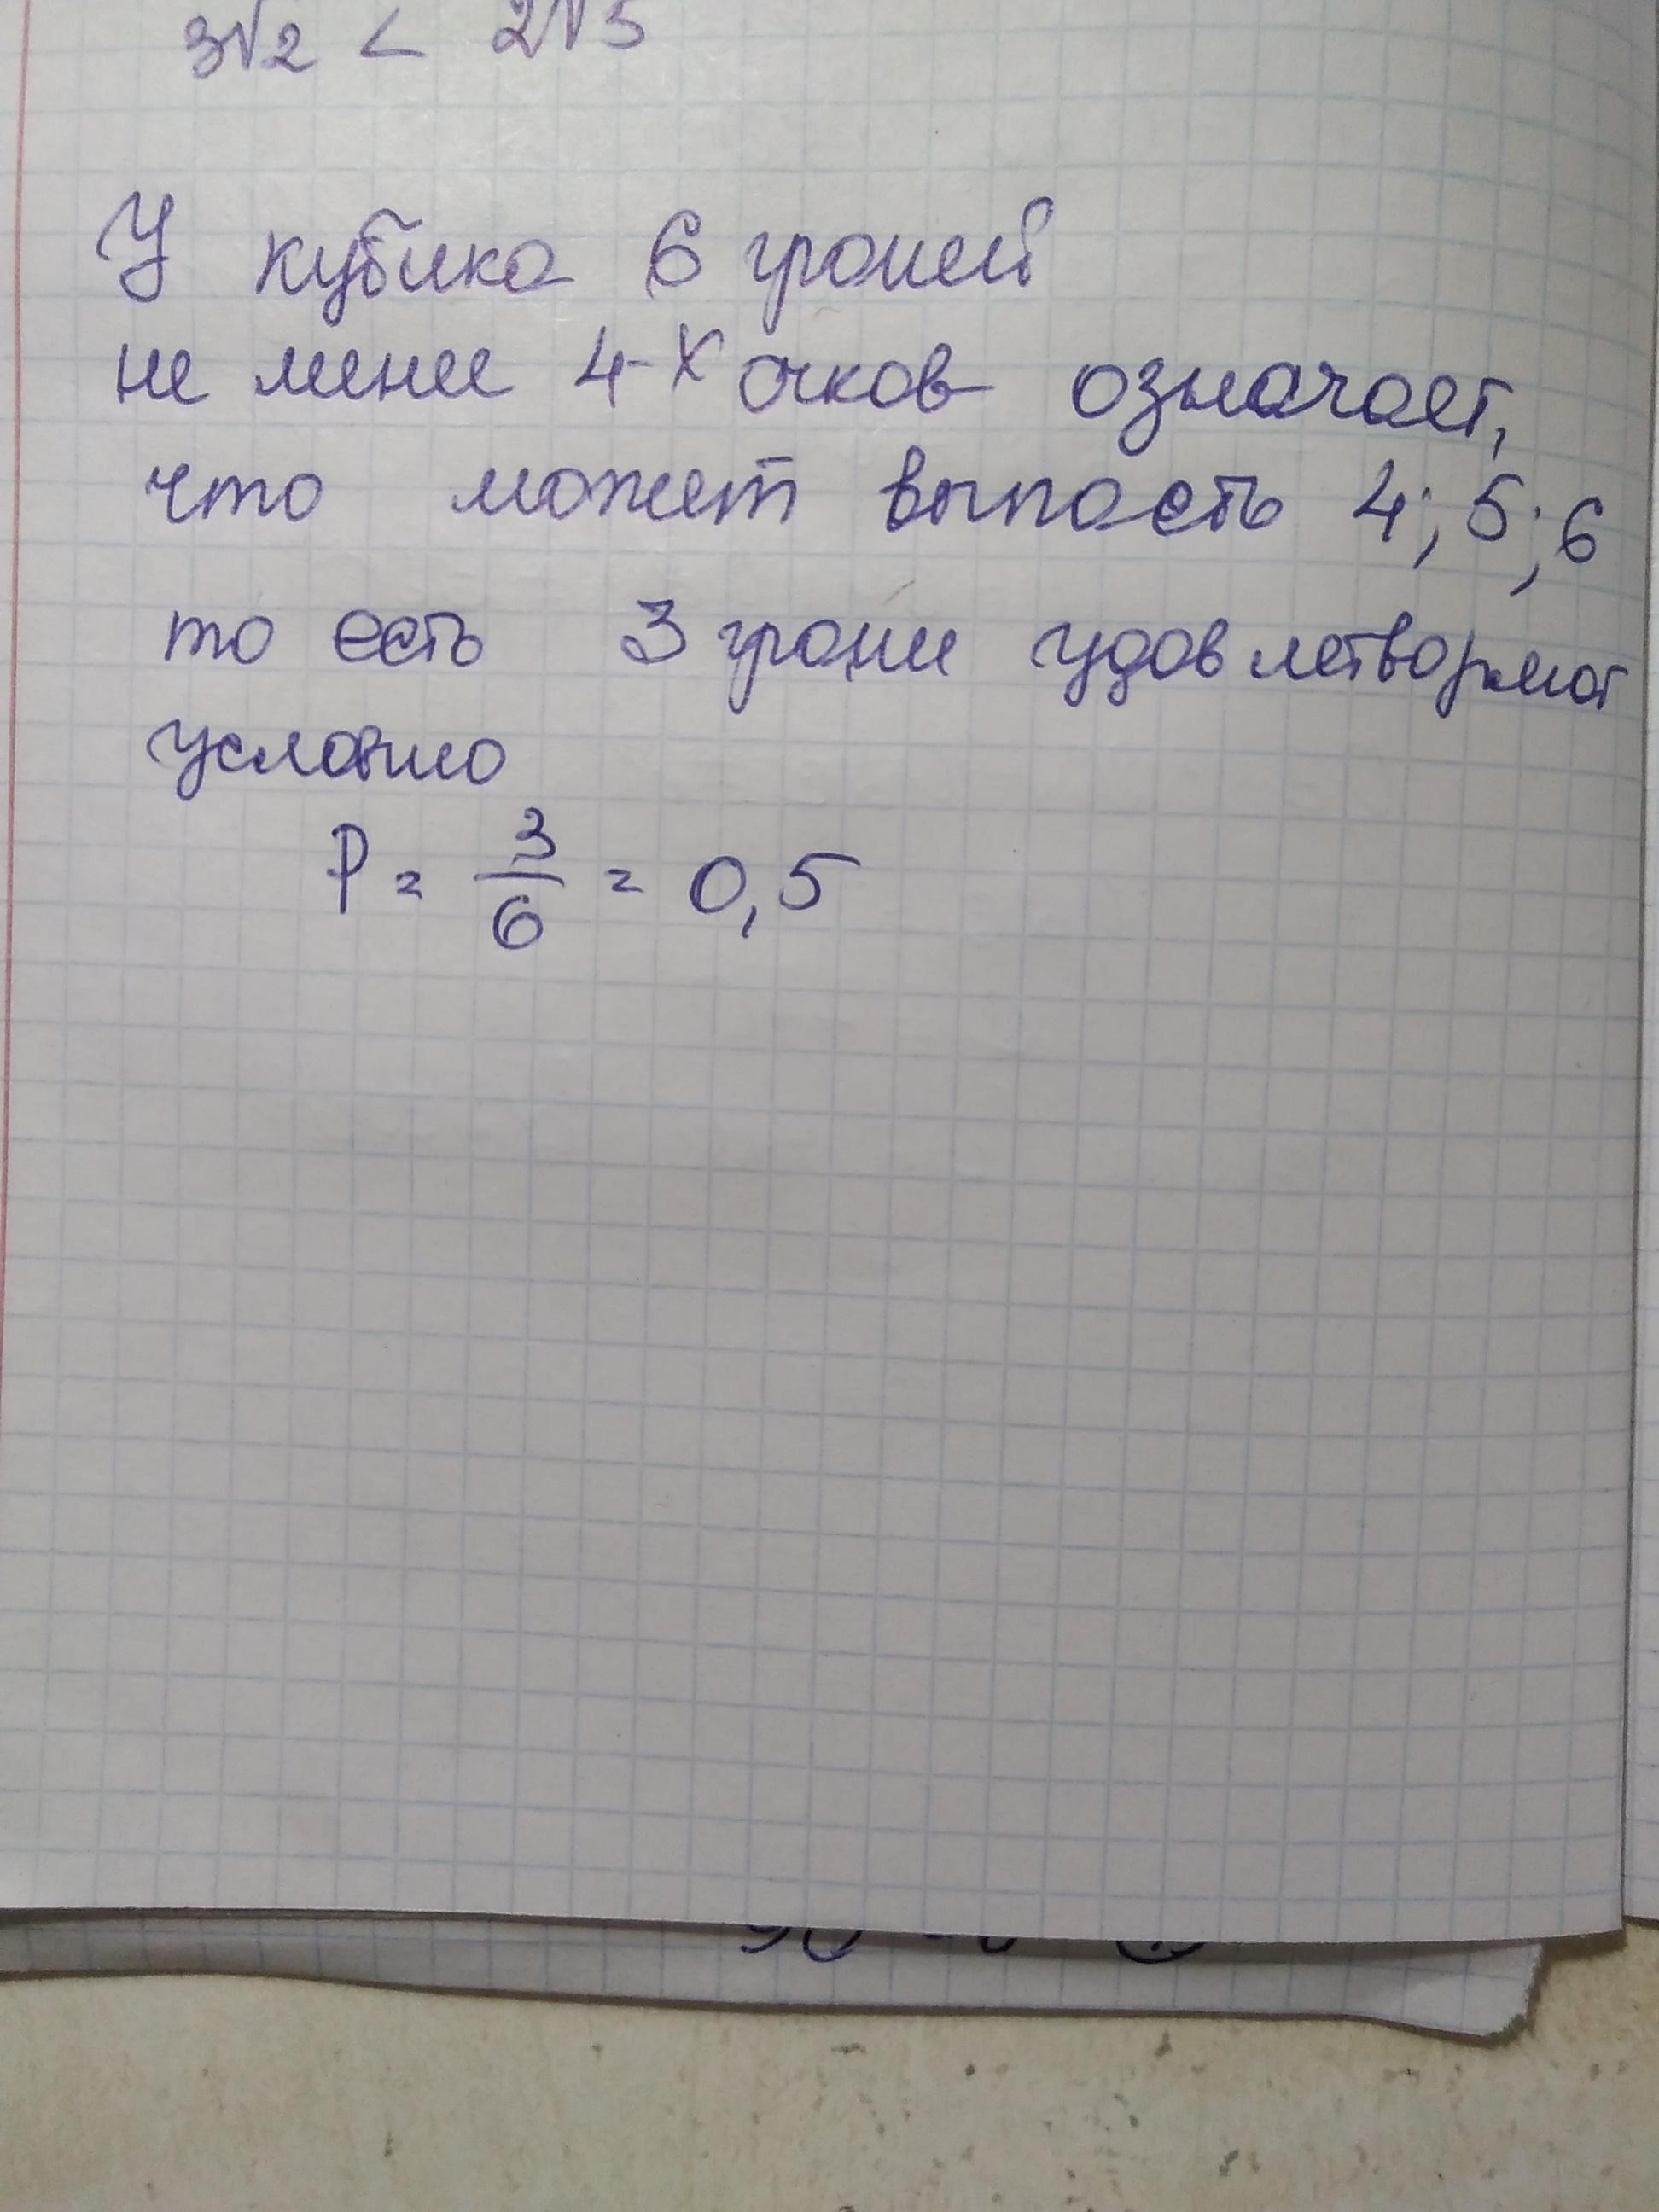 3√2 < 2√5
У кубика 6 граней
не менее 4-х очков означает,
что может выпасть 4; 5; 6
то есть 3 грани удовлетворяют
условию
P = 3/6 = 0,5